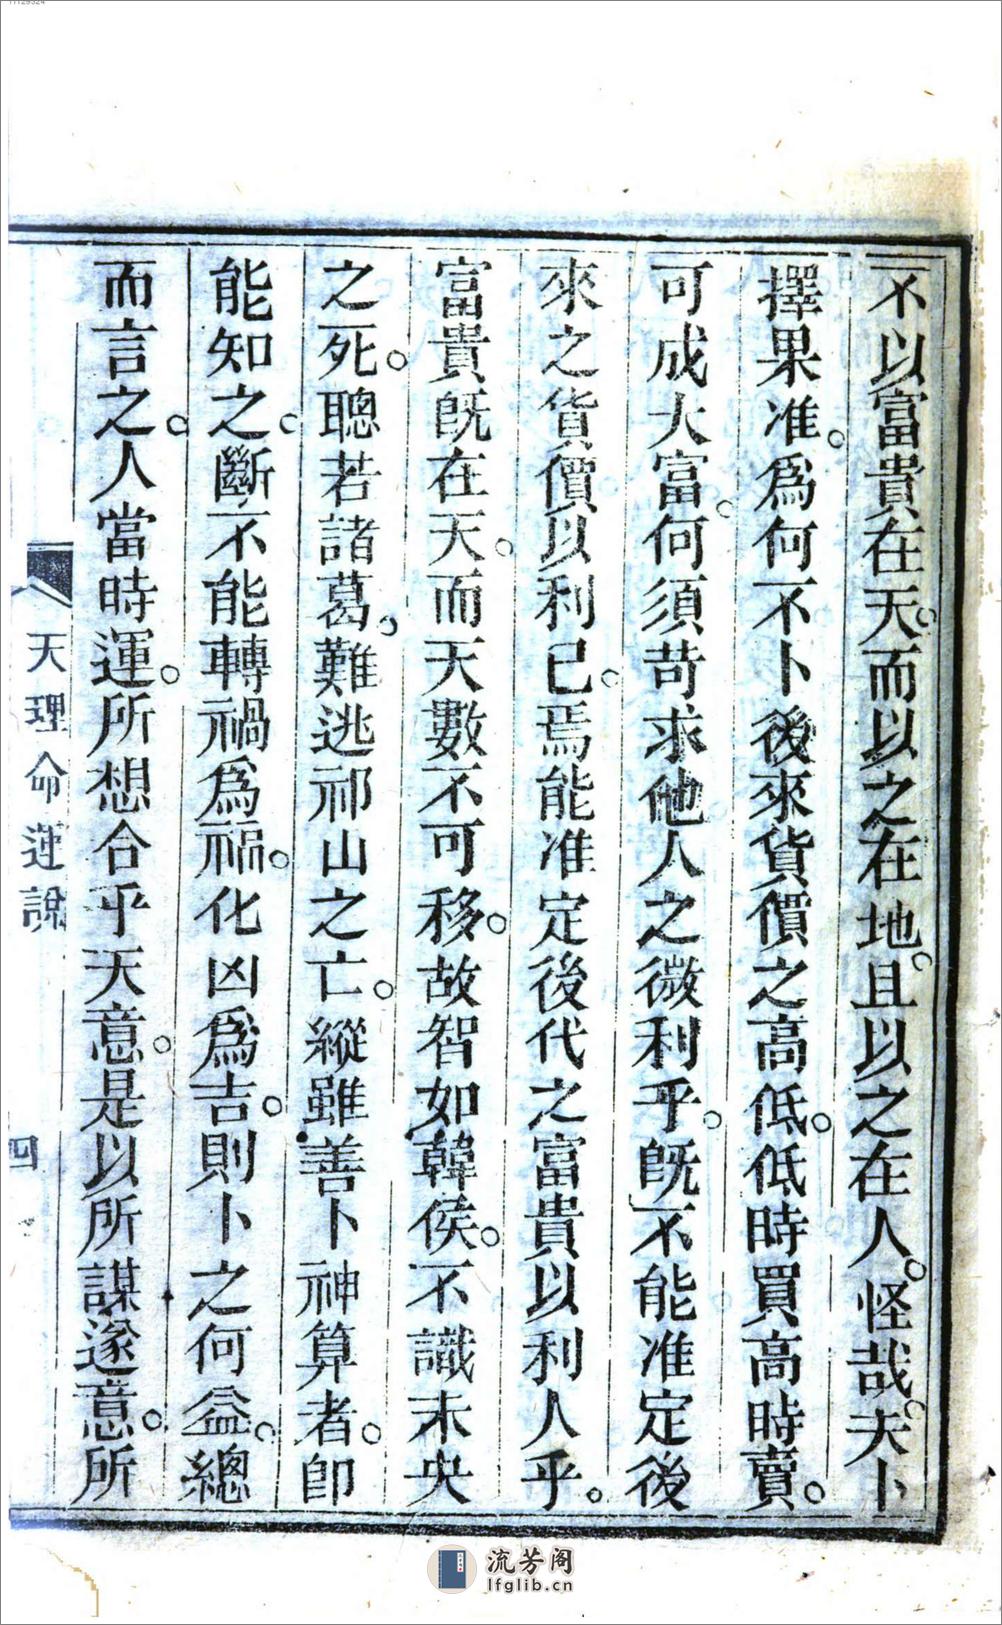 不以富貴在天而以之在地且以之在人怪哉夫卜
擇果准爲何不卜後來貨價之高低低時買高時賣
可成大富何須苛求他人之微利乎既不能准定後
來之貨價以利己焉能准定後代之富貴以利人乎
富貴既在天而天數不可移故智如韓侯不識未央
之死聰若諸葛難逃祁山之亡縱雖善卜神算者即
能知之斷不能轉禍爲福化凶爲吉則卜之何益總
而言之人當時運所想合乎天意是以所謀遂意所
天理命運說
四
流芳阁
lfglib.cn